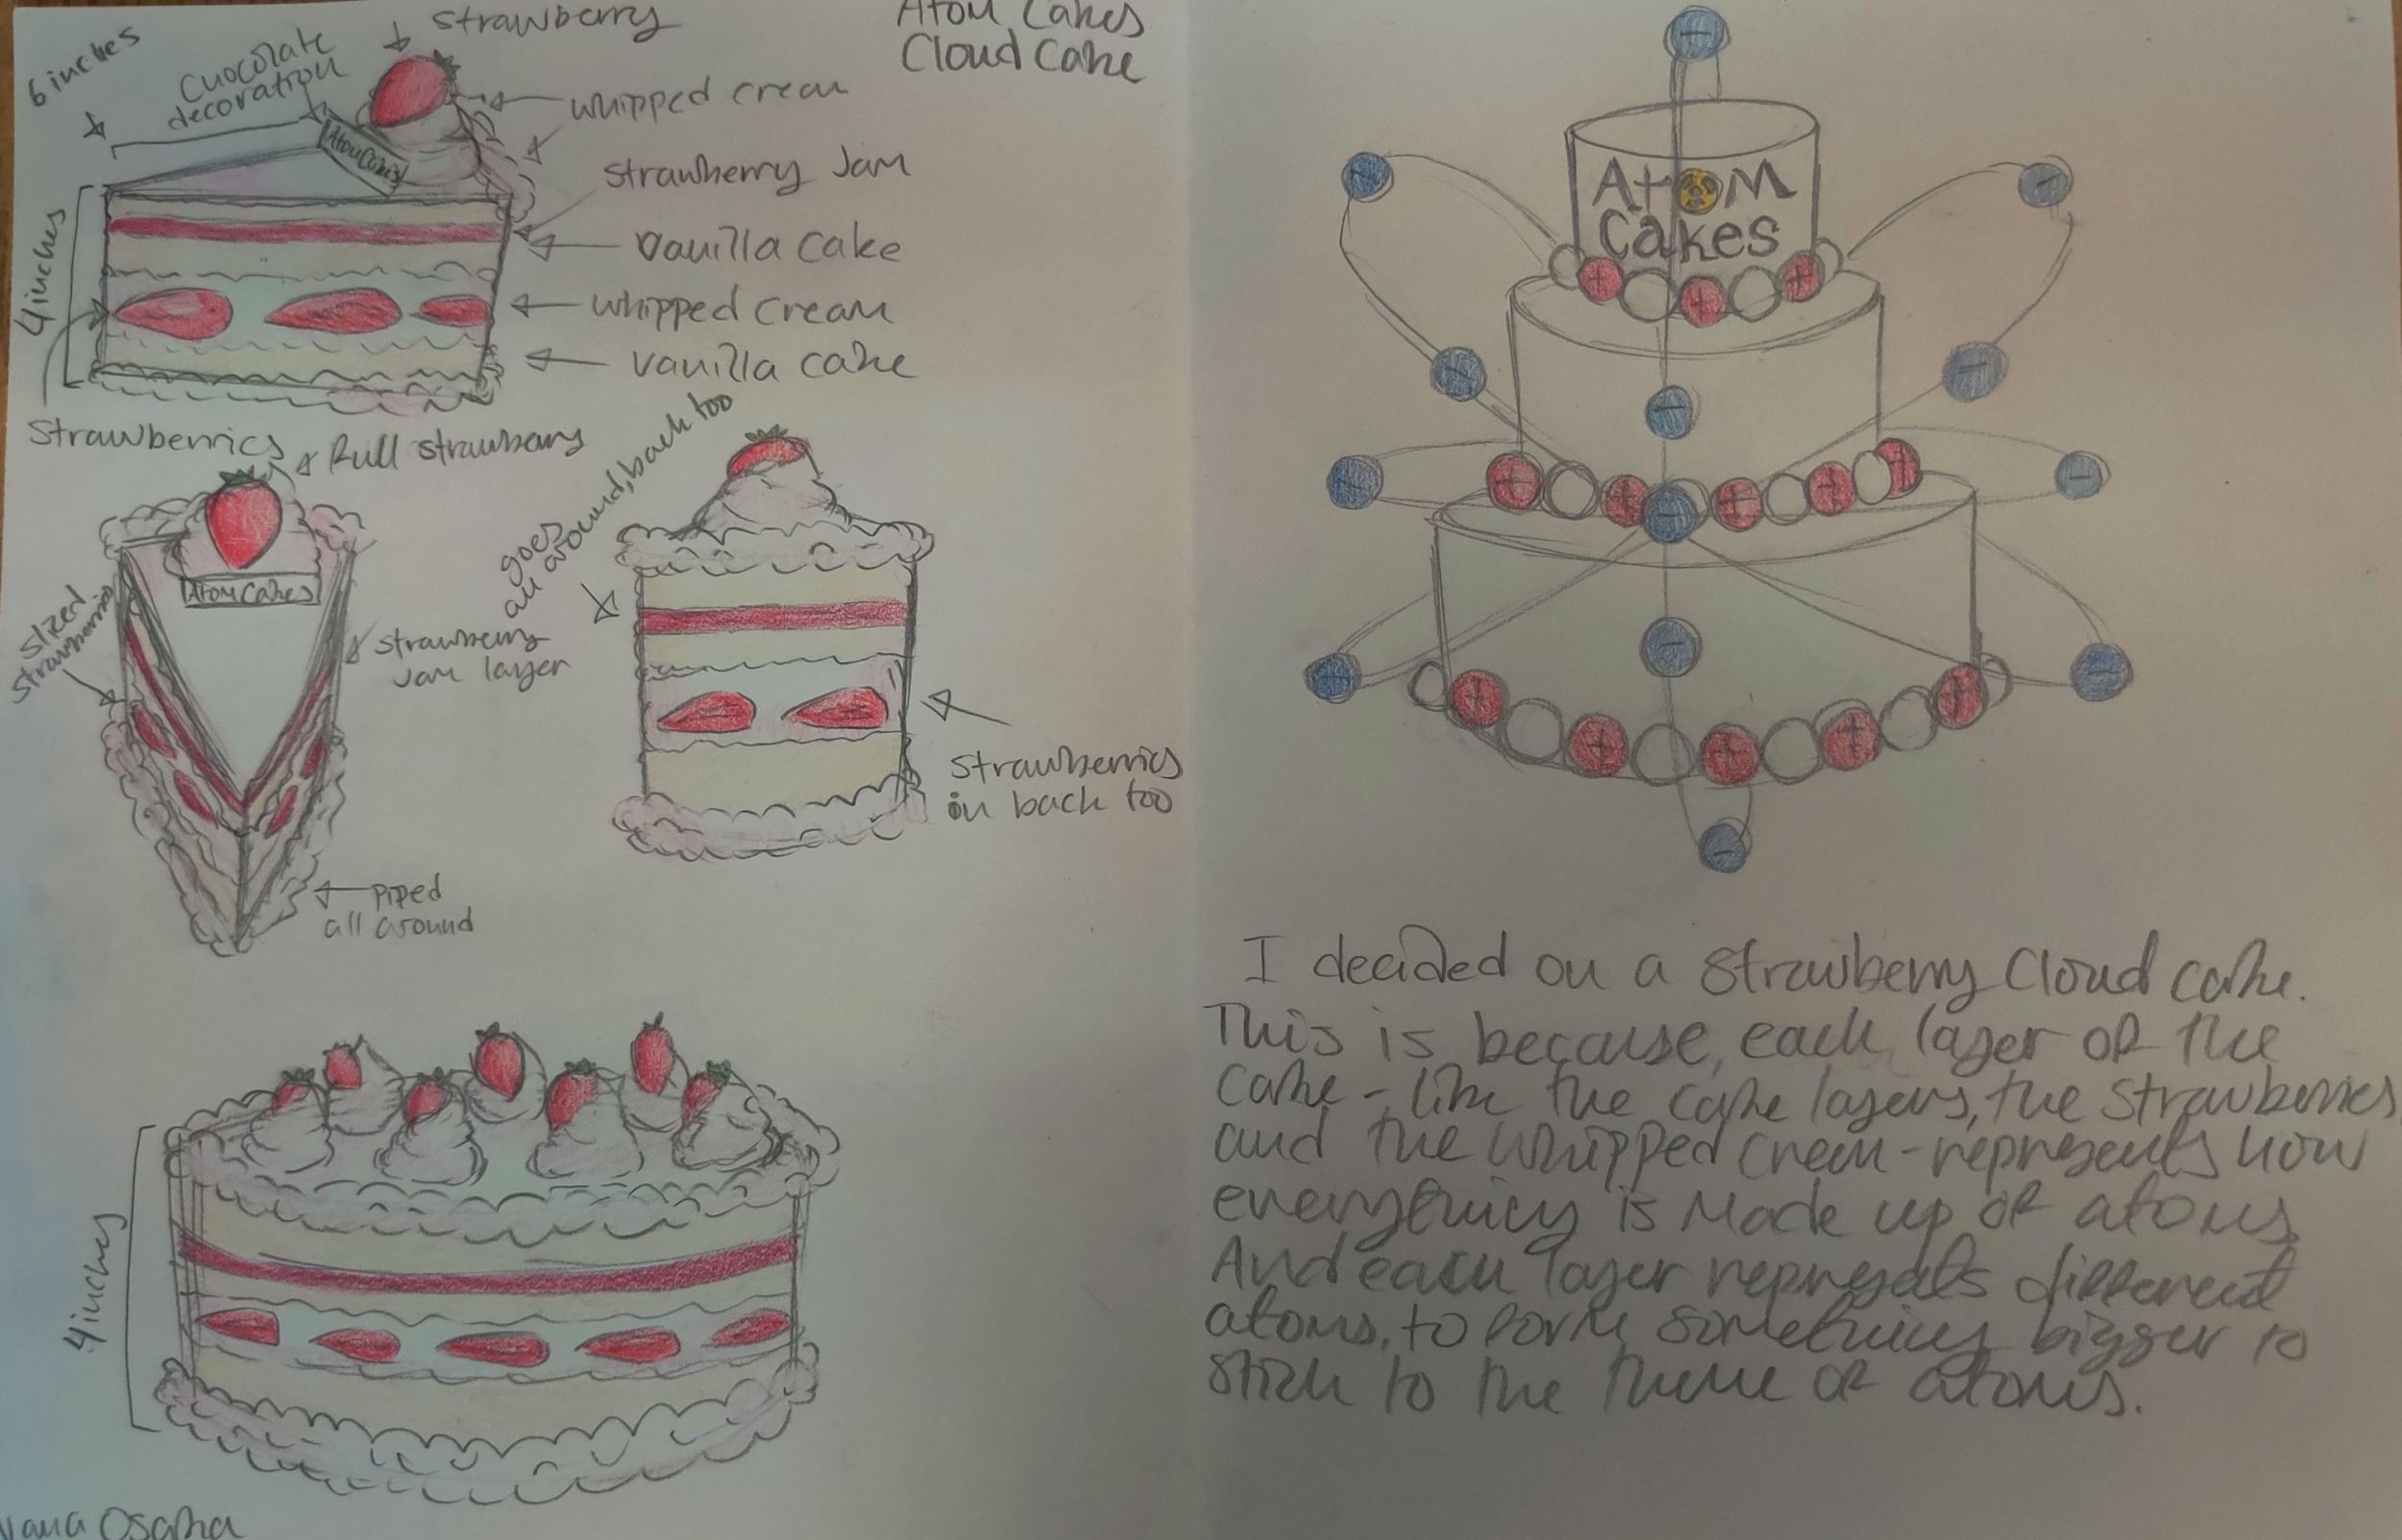 Atom Cakes
Cloud Cake
6 inches
Chocolate
decoration
strawberry
whipped cream
Atom Cakes
strawberry Jam
vanilla cake
whipped cream
vanilla cake
4 inches
Strawberries
full strawberry
Atom Cakes
sliced
strawberries
strawberry
jam layer
piped
all around
goes
all around, back too
strawberries
in back too
4 inches
Osama
Atom
Cakes
I decided on a Strawberry Cloud cake.
This is because, each layer of the
cake - like the cake layers, the strawberries
and the whipped cream - represents how
everything is Made up of atoms.
And each layer represents different
atoms, to form something bigger to
stick to the theme of atoms.